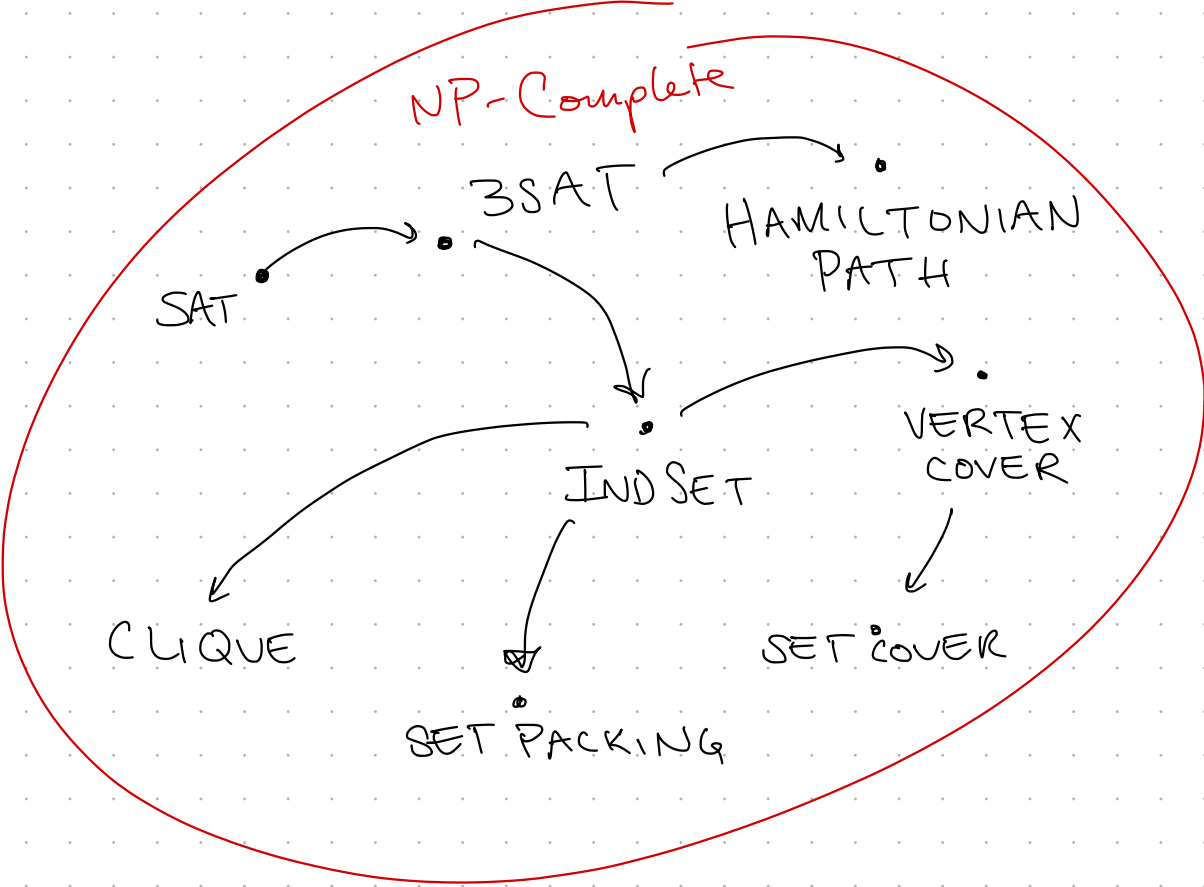 NP-Complete
3SAT
HAMILTONIAN
PATH
SAT
VERTEX
COVER
INDSET
CLIQUE
SET COVER
SET PACKING